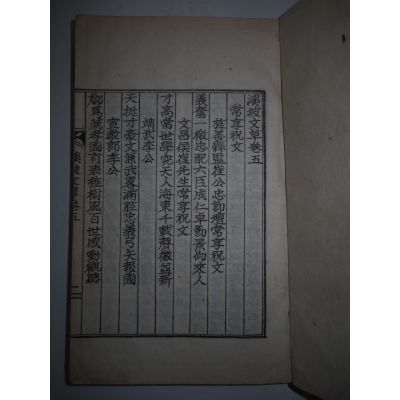 溪坡文草卷五
常享祝文
旌善縣監崔公忠勛壇常享祝文
義奮一檄忠配六臣成仁卓勛景仰來人
文昌侯崔先生常享祝文
才高當世學究天人海東千載聲徽益新
靖武李公
天挺才豪文兼武畧滿腔忠義弓矢報國
宣敎郎李公
鄕爲薦孝國有表旌樹風百世感動觀聽
溪坡文草卷五
一